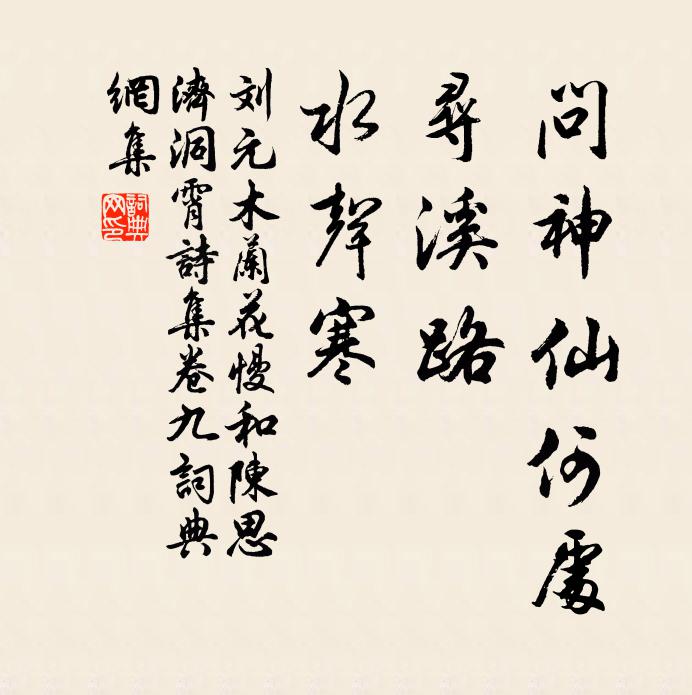 問神仙何處
尋溪路
水聲寒
刘元木蘭花慢和陳思
濟洞霄詩集卷九詞典
網集
詞典
网印